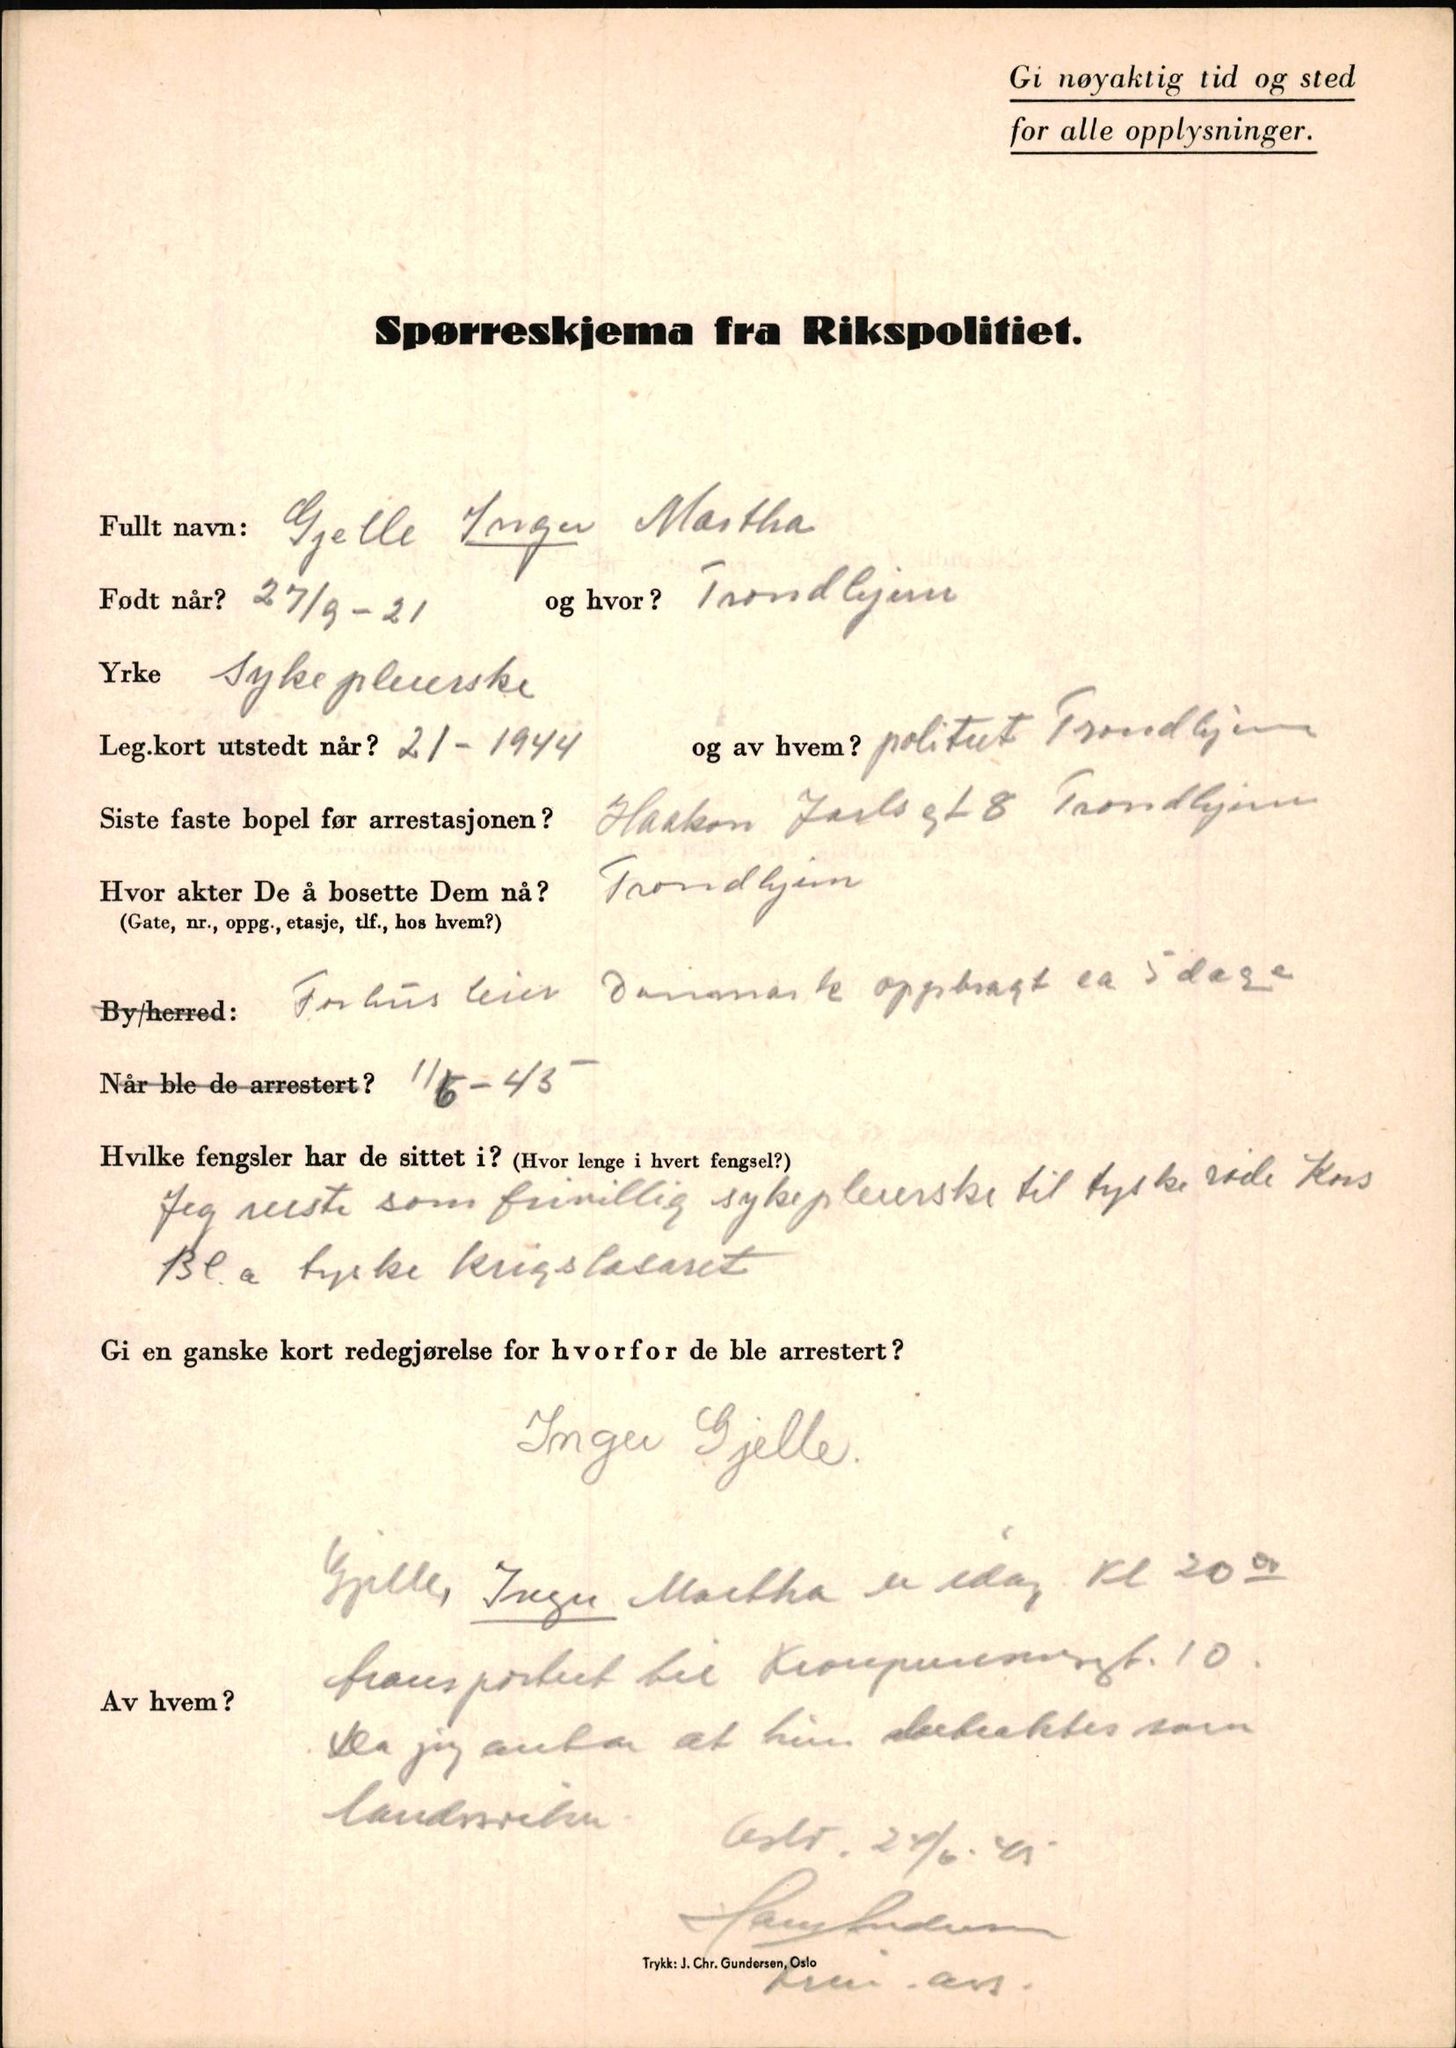 Gi nøyaktig tid og sted
for alle opplysninger.
Spørreskjema fra Rikspolitiet.
Fullt navn: Gjelle Inger Martha
Født når? 27/9-21 og hvor? Trondhjem
Yrke Sykepleierske
Leg.kort utstedt når? 21-1944 og av hvem? politiet Trondhjem
Siste faste bopel før arrestasjonen? Haakon Jarls gt 8 Trondhjem
Hvor akter De å bosette Dem nå? Trondhjem
(Gate, nr., oppg., etasje, tlf., hos hvem?)
By/herred: leir Danmark oppbragt ca 5 dage
Når ble de arrestert? 11/6-45
Hvilke fengsler har de sittet i? (Hvor lenge i hvert fengsel?)
Jeg reiste som frivillig sykepleierske til tyske røde Kors
Bl.a tyske krigslasaret
Gi en ganske kort redegjørelse for hvorfor de ble arrestert?
Inger Gjelle.
Gjelle, Inger Martha er idag Kl 20 00
transportert til Kronprinsensgt. 10.
Av hvem?
Da jeg antar at hun betraktes som
landssviker.
Oslo. 24/6.45
Trykk: J. Chr. Gundersen, Oslo
Krim.ass.